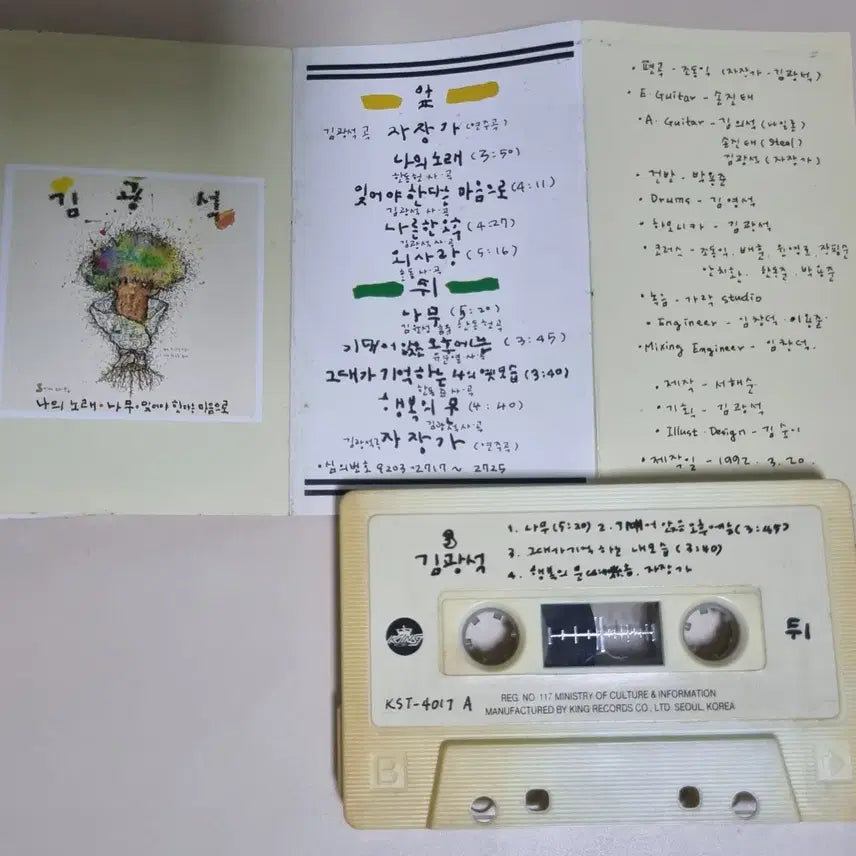 김 광 석
나의 노래 · 나무 · 잊어야 한다는 마음으로
앞
김광석 곡 자장가 (연주곡)
나의 노래 (3:50)
한동헌 사·곡
잊어야 한다는 마음으로 (4:11)
김광석 사·곡
나른한 오후 (4:27)
김광석 사·곡
외사랑 (5:16)
한동헌 사·곡
뒤
나무 (5:20)
김윤성 사 한동헌 곡
기대어 앉은 오후에는 (3:45)
유준열 사·곡
그대가 기억하는 나의 옛모습 (3:40)
한동헌 사·곡
행복의 문 (4:40)
김광석 사·곡
김광석 곡 자장가 (연주곡)
· 심의번호 9203-2717 ~ 2725
· 편곡 - 조동익 (자장가 - 김광석)
· E. Guitar - 손진태
· A. Guitar - 김의석 (나일론)
손진태 (Steel)
김광석 (자장가)
· 건반 - 박용준
· Drums - 김영석
· 하모니카 - 김광석
· 코러스 - 조동익, 배훈,
안치환, 한동준, 박용준
· 녹음 - 가락 studio
· Engineer - 임창덕 · 이용준
· Mixing Engineer - 임창덕.
· 제작 - 서해순
· 기획 - 김광석
· Illust. Design - 김순이
· 제작일 - 1992. 3. 20.
김광석
1. 나무 (5:20) 2. 기대어 앉은 오후에는 (3:45)
3. 그대가 기억하는 내모습 (3:40)
4. 행복의 문 자장가
KING
뒤
KST-4017 A
REG. NO. 117 MINISTRY OF CULTURE & INFORMATION
MANUFACTURED BY KING RECORDS CO., LTD. SEOUL, KOREA
B